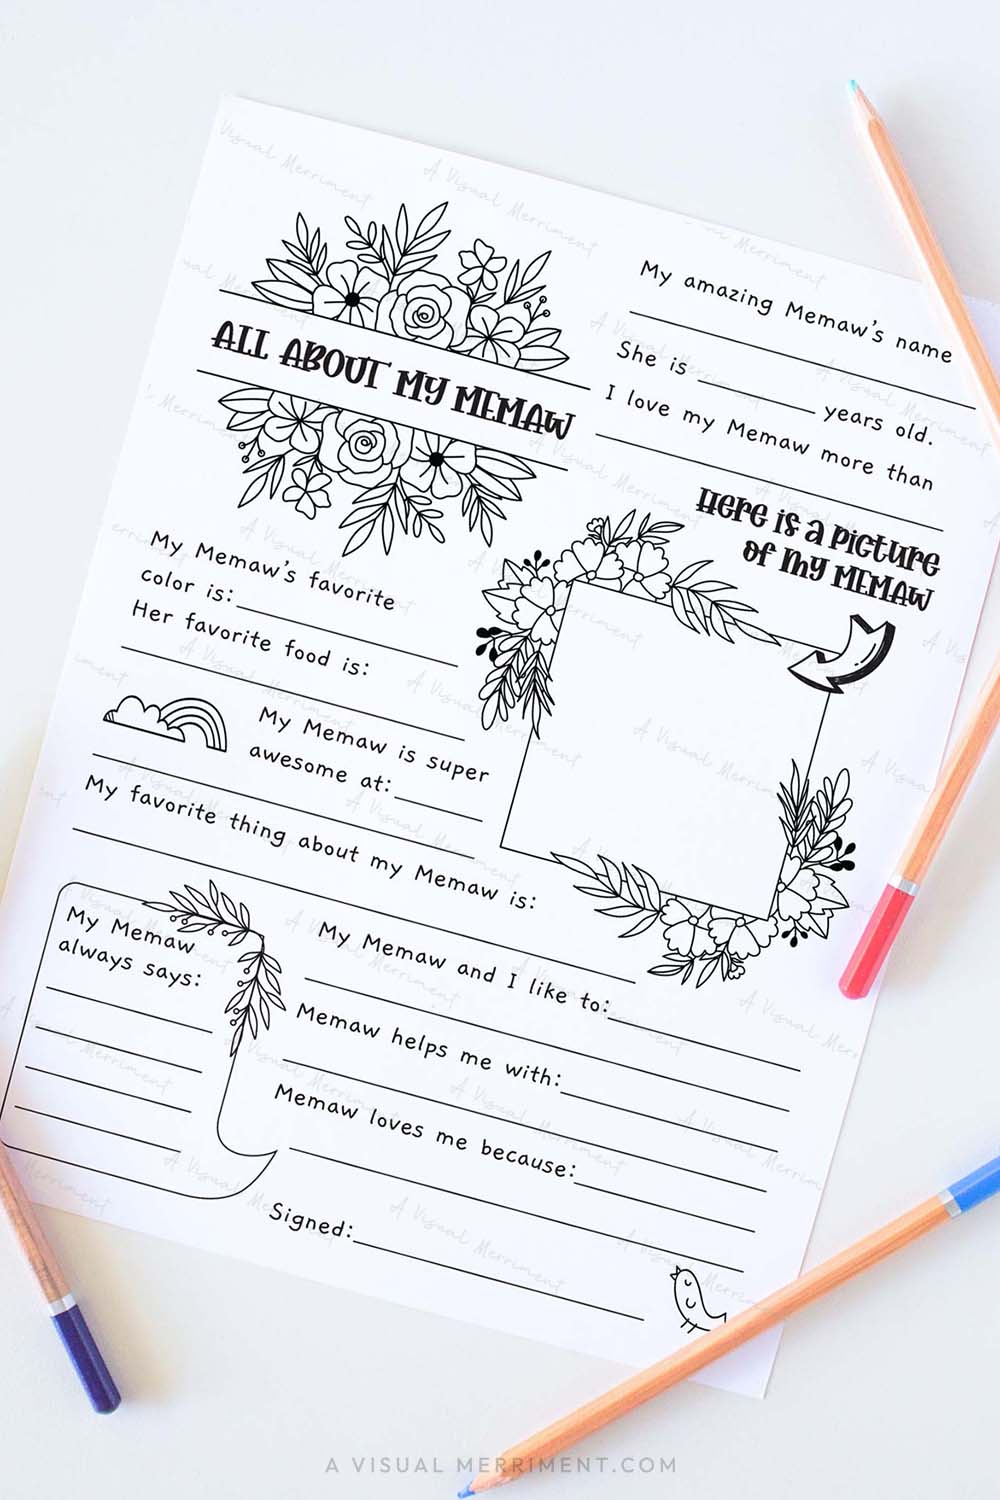 ALL ABOUT MY MEMAW
My amazing Memaw's name
She is ____ years old.
I love my Memaw more than
Here is a picture
of my MEMAW
My Memaw's favorite
color is:
Her favorite food is:
My Memaw is super
awesome at:
My favorite thing about my Memaw is:
My Memaw
always says:
My Memaw and I like to:
Memaw helps me with:
Memaw loves me because:
Signed:
A Visual Merriment
A VISUAL MERRIMENT.COM